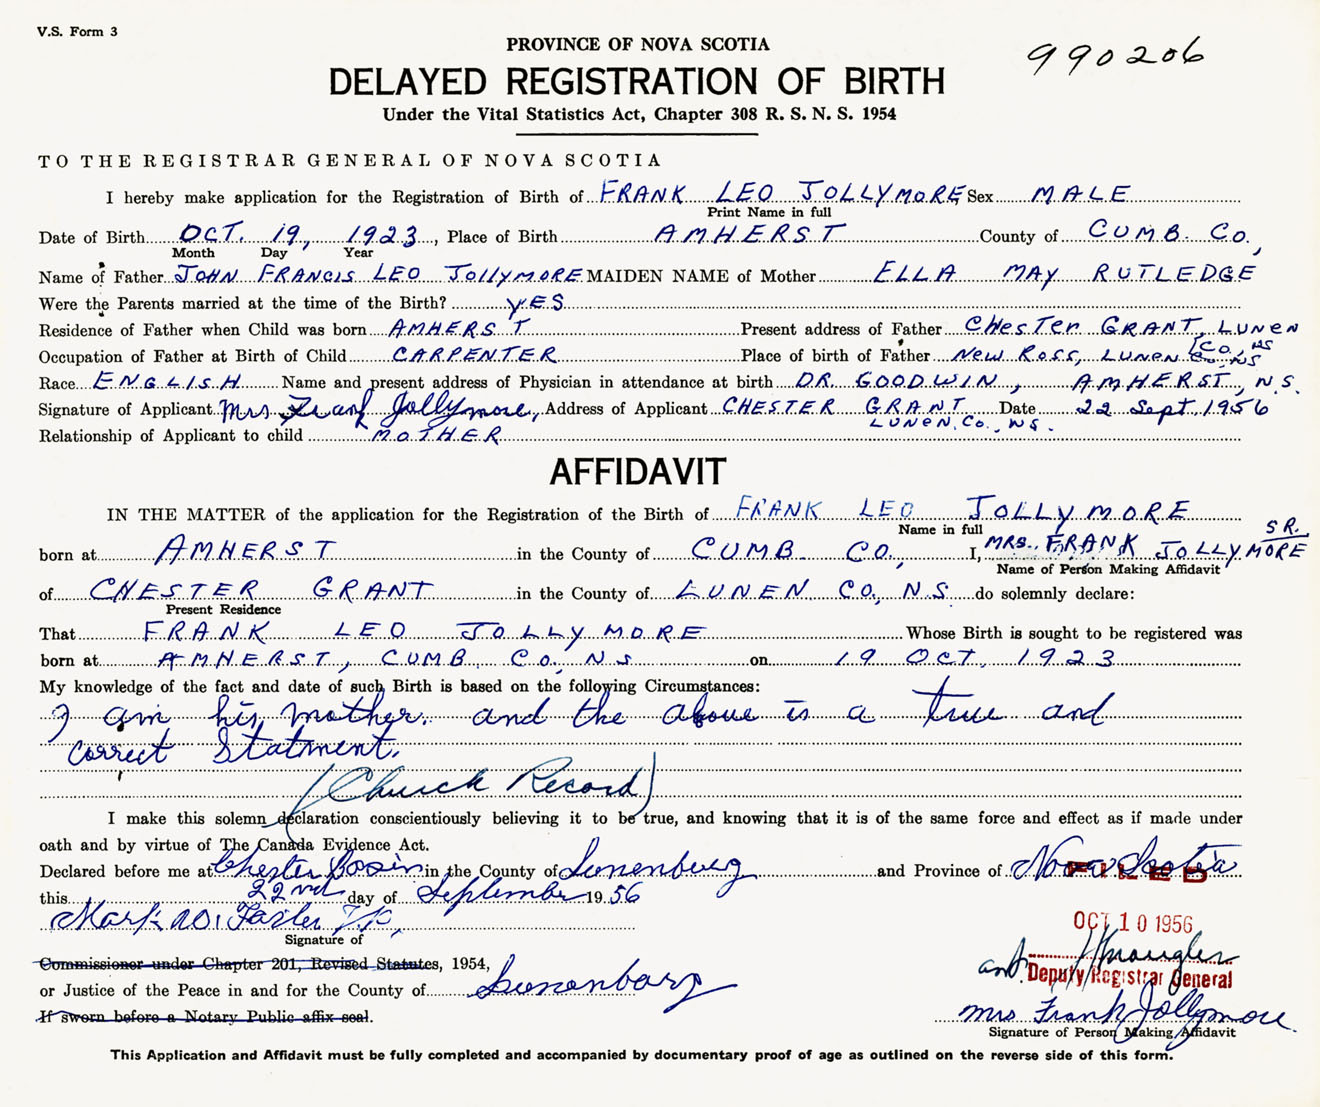 V.S. Form 3
PROVINCE OF NOVA SCOTIA
990206
DELAYED REGISTRATION OF BIRTH
Under the Vital Statistics Act, Chapter 308 R. S. N. S. 1954
TO THE REGISTRAR GENERAL OF NOVA SCOTIA
I hereby make application for the Registration of Birth of FRANK LEO JOLLYMORE Sex MALE
Print Name in full
Date of Birth OCT. 19, 1923, Place of Birth AMHERST County of CUMB. CO.,
Month Day Year
Name of Father JOHN FRANCIS LEO JOLLYMORE MAIDEN NAME of Mother ELLA MAY RUTLEDGE
Were the Parents married at the time of the Birth? YES
Residence of Father when Child was born AMHERST Present address of Father CHesTer GRANT, LUNEN
CO., NS
Occupation of Father at Birth of Child CARPENTER Place of birth of Father New Ross, LUNEN Co., NS
Race ENGLISH Name and present address of Physician in attendance at birth DR. GOODWIN, AMHERST, N.S.
Signature of Applicant Mrs Frank Jollymore, Address of Applicant CHESTER GRANT Date 22 Sept. 1956
LUNEN. Co., NS.
Relationship of Applicant to child MOTHER
AFFIDAVIT
IN THE MATTER of the application for the Registration of the Birth of FRANK LEO JOLLYMORE
Name in full
SR.
born at AMHERST in the County of CUMB. CO., I, MRS. FRANK JOLLYMORE
Name of Person Making Affidavit
of CHESTER GRANT in the County of LUNEN CO., N.S. do solemnly declare:
Present Residence
That FRANK LEO JOLLYMORE Whose Birth is sought to be registered was
born at AMHERST, CUMB. CO., NS on 19 OCT. 1923
My knowledge of the fact and date of such Birth is based on the following Circumstances:
I am his mother. and the above is a true and
correct Statment.
(Church Record)
I make this solemn declaration conscientiously believing it to be true, and knowing that it is of the same force and effect as if made under
oath and by virtue of The Canada Evidence Act.
Declared before me at Chester Basin in the County of Lunenburg and Province of Nova Scotia
FILED
this 22nd day of September 1956
Mark
OCT 10 1956
Signature of
Commissioner under Chapter 201, Revised Statutes, 1954,
Deputy Registrar General
or Justice of the Peace in and for the County of Lunenburg
If sworn before a Notary Public affix seal.
Mrs Frank Jollymore.
Signature of Person Making Affidavit
This Application and Affidavit must be fully completed and accompanied by documentary proof of age as outlined on the reverse side of this form.